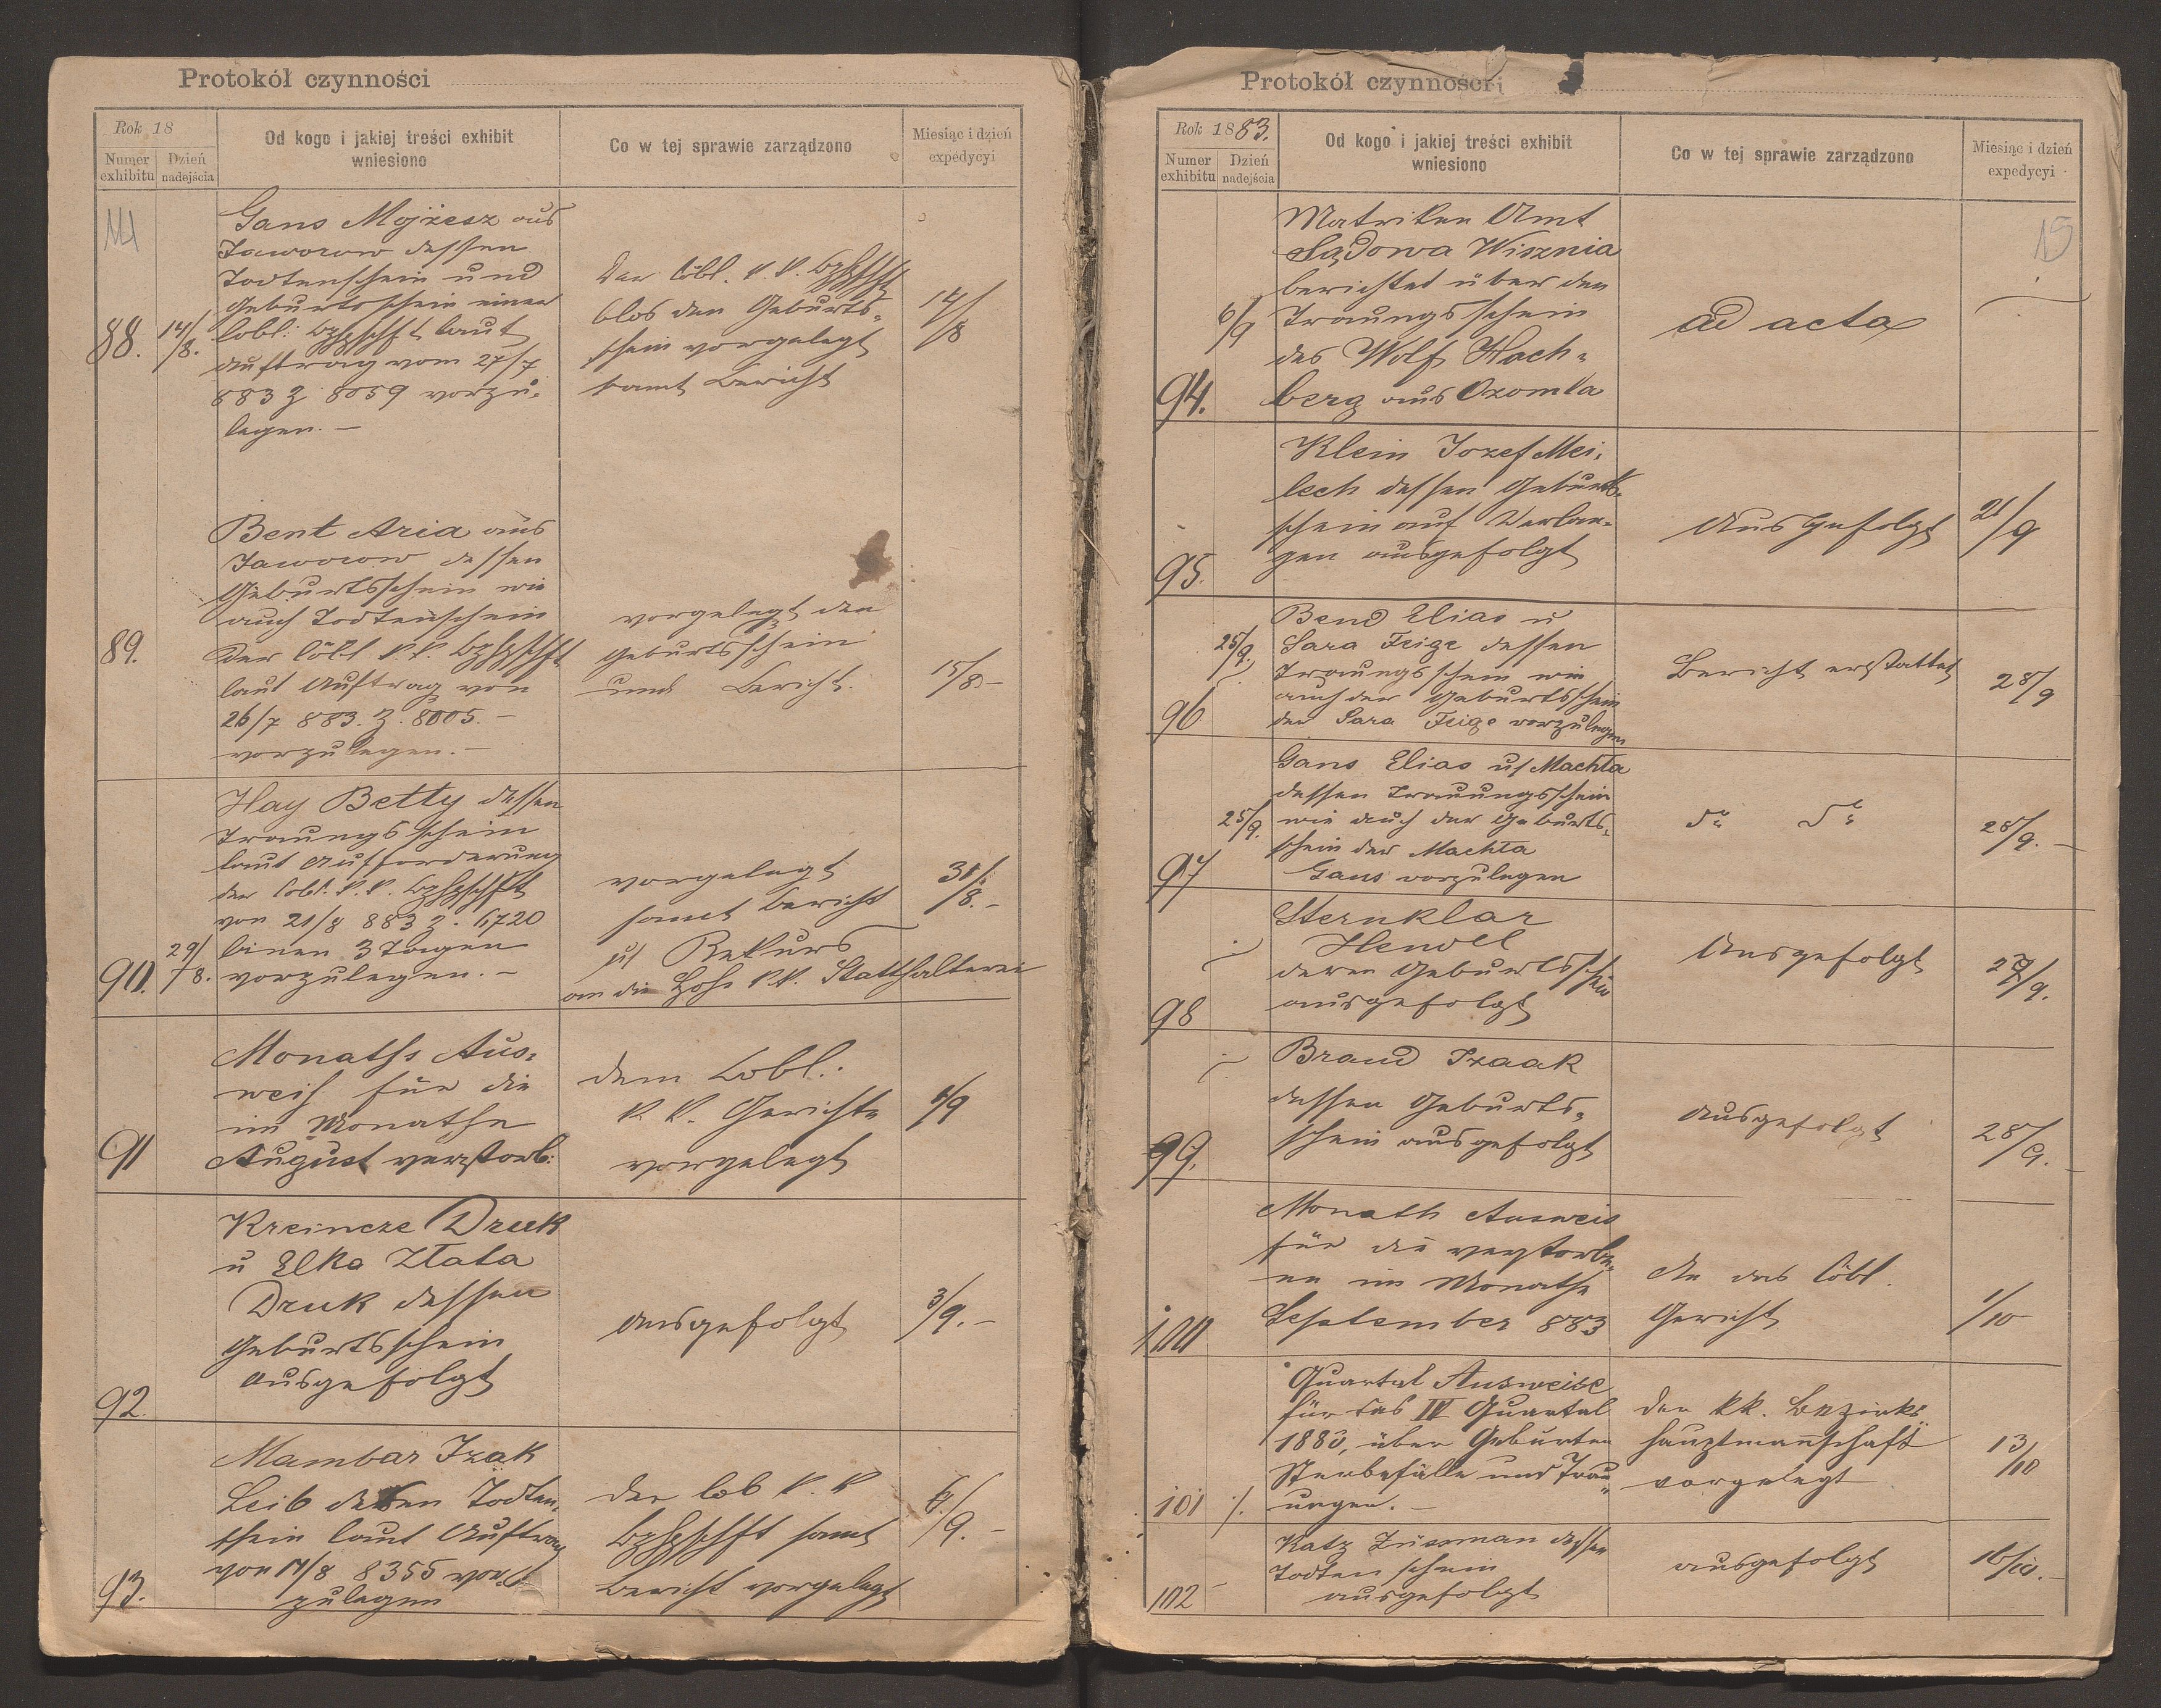 Protokół czynności
Rok 18
Numer exhibitu
Dzień nadejścia
Od kogo i jakiej treści exhibit wniesiono
Co w tej sprawie zarządzono
Miesiąc i dzień expedycyi
14
88.
14/8.
Gans Mojżesz aus
Jaworow dessen
Todtenschein und
Geburtsschein einer
löbl: Bzhptschft laut
Auftrag vom 27/7
883 Z 8059 vorzu=
legen. —
Der löbl. k. k. Bzhptschft
blos den Geburts=
schein vorgelegt
samt Bericht
14/8
89.
Bent Aria aus
Jaworow dessen
Geburtsschein wie
auch Todtenschein
Der löbl k. k. Bzhptschft
laut Auftrag von
26/7 883. Z. 8005. —
vorzulegen. —
vorgelegt den
Geburtsschein
und Bericht.
15/8. —
90.
29/8.
Hay Betty dessen
Trauungsschein
laut Aufforderung
der löbl. k. k. Bzhptschft
von 21/8 883 Z. 6720
binen 3 Tagen
vorzulegen. —
vorgelegt
samt Bericht
Rekurs
an die Hohe k.k. Statthalterei
31/8. —
91
Monaths Aus=
weis für die
im Monathe
August verstorb:
dem Löbl.
k. k. Gerichte
vorgelegt
1/9
92.
Kreincze Druk
u Elka Złata
Druk dessen
Geburtsschein
ausgefolgt
ausgefolgt
3/9. —
93.
Mambar Izak
Leib dessen Todten=
schein laut Auftrag
von 17/8 8355 vor=
zulegen
der löb k. k
Bzhptschft samt
Bericht vorgelegt
6/9. —
Protokół czynności
Rok 1883.
Numer exhibitu
Dzień nadejścia
Od kogo i jakiej treści exhibit wniesiono
Co w tej sprawie zarządzono
Miesiąc i dzień expedycyi
15
94.
6/9
Matriken Amt
Sądowa Wisznia
berichtet über den
Trauungsschein
des Wolf Hach=
berg aus Ozomla
ad acta
95.
Klein Jozef Mei=
lech dessen Geburts=
schein auf Verlan=
gen ausgefolgt
Ausgefolgt
21/9
96
25/9.
Bend Elias u
Sara Feige dessen
Trauungsschein wie
auch der Geburtsschein
der Sara Feige vorzulegen
Bericht erstattet
28/9
97
25/9.
Gans Elias u Machla
dessen Trauungsschein
wie auch der Geburts=
schein der Machla
Gans vorzulegen
dto dto
28/9. —
98
Sternklar
Hendel
deren Geburtsschein
ausgefolgt
Ausgefolgt
27/9.
99.
Brand Izaak
dessen Geburts=
schein ausgefolgt
Ausgefolgt
28/9. —
100
Monath Ausweis
für die verstorbe=
nen im Monathe
September 883
An das löbl.
Gericht
1/10
101
Quartal Ausweise
für das IV Quartal
1883, über Geburten
Sterbefälle und Trau=
ungen. —
Der kk. Bezirks
hauptmannschaft
vorgelegt
13/10
102
Katz Züssman dessen
Todtenschein
ausgefolgt
ausgefolgt
16/10. —